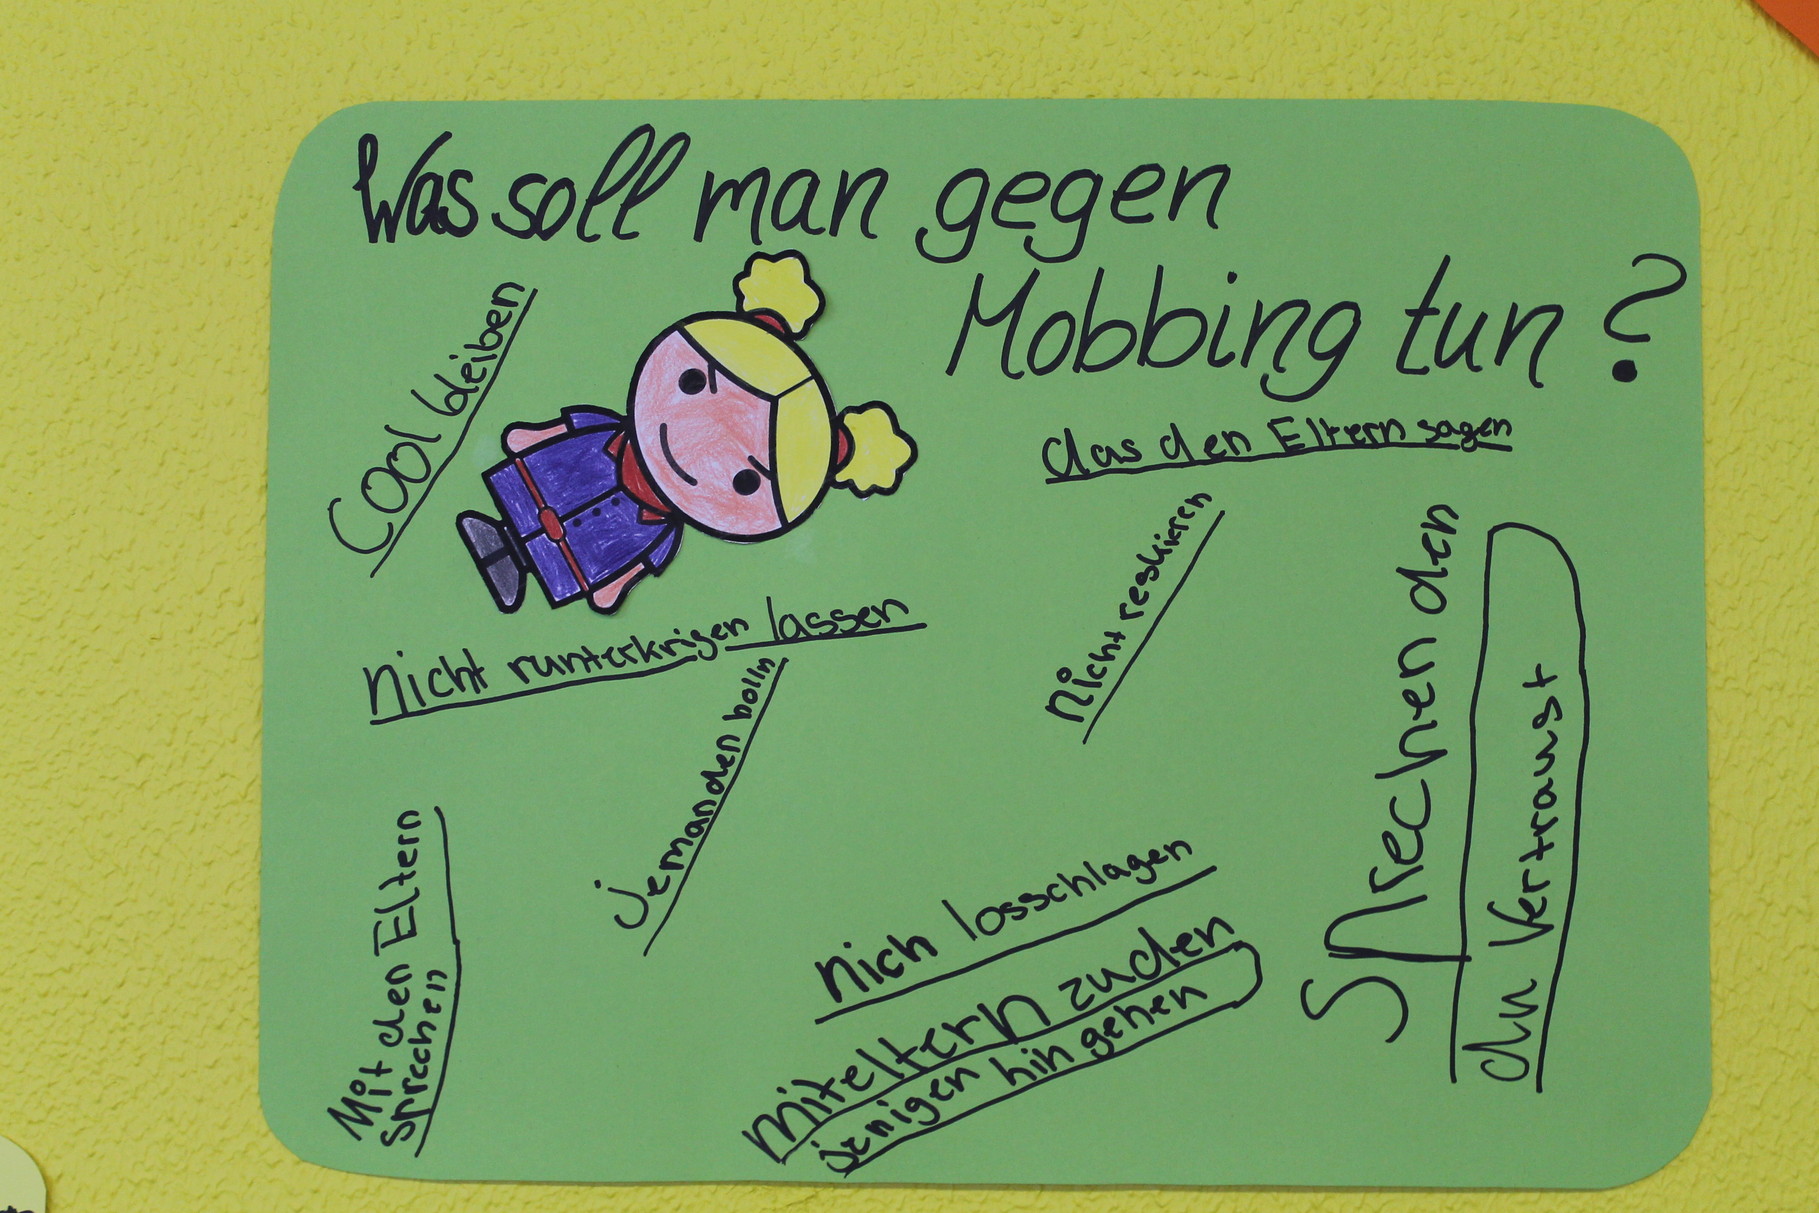 Was soll man gegen
Mobbing tun ?
Cool bleiben
das den Eltern sagen
nicht reskieren
nicht runterkrigen lassen
jemanden holln
Sprechen den
du Vertraust
Mit den Eltern
sprechen
nich losschlagen
miteltern zuden
jenigen hin gehen